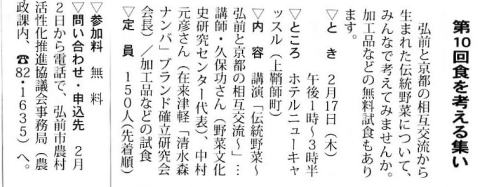 第10回食を考える集い
弘前と京都の相互交流から
生まれた伝統野菜について、
みんなで考えてみませんか。
加工品などの無料試食もあり
ます。
▽と き 2月17日（木）
午後1時～3時半
▽ところ ホテルニューキャ
ッスル（上鞘師町）
▽内 容 講演「伝統野菜～
弘前と京都の相互交流～」…
講師・久保功さん（野菜文化
史研究センター代表）、中村
元彦さん（在来津軽「清水森
ナンバ」ブランド確立研究会
会長）／加工品などの試食
▽定 員 150人（先着順）
▽参加料 無 料
▽問い合わせ・申込先 2月
2日から電話で、弘前市農村
活性化推進協議会事務局（農
政課内、☎82・1635）へ。